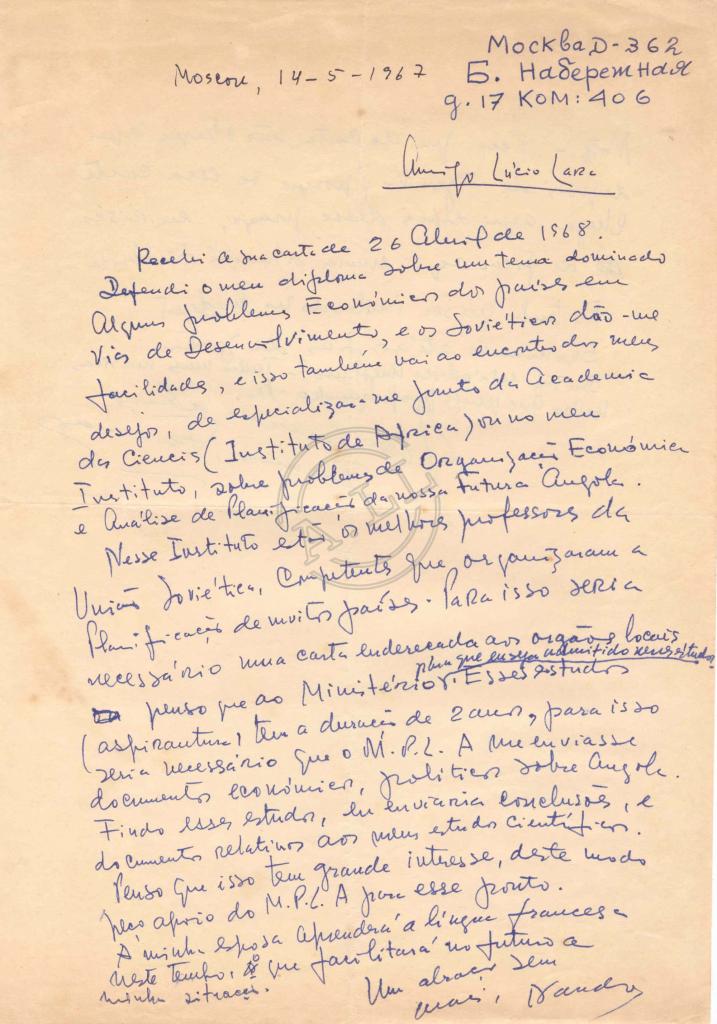 Москва Д-362
Б. Набережная
д. 17 КОМ: 406
Moscou, 14-5-1967
Amigo Lúcio Lara
Recebi a sua carta de 26 Abril de 1968.
Defendi o meu diploma sobre um tema dominado
Alguns problemas Económicos dos países em
Vias de Desenvolvimento, e os Soviéticos dão-me
facilidades, e isso também vai ao encontro dos meus
desejos, de especializar-me junto da Academia
das Ciencis (Instituto de Africa) ou no meu
Instituto, sobre problemas de Organização Económica
e Análise de Planificação da nossa futura Angola.
Nesse Instituto estão os melhores professores da
União Soviética, Competentes que organizaram a
Planificação de muitos países. Para isso seria
necessário uma carta enderecada aos orgãos locais
para que eu seja admitido nesses estudos
penso que ao Ministério. Esses estudos
(aspirantura) tem a duração de 2 anos, para isso
seria necessário que o M.P.L.A me enviasse
documentos económicos, politicos sobre Angola.
Findo esses estudos, eu enviaria conclusões, e
documentos relativos aos meus estudos cientificos.
Penso que isso tem grande interesse, deste modo
peço apoio do M.P.L.A para esse ponto.
A minha esposa aprenderá a lingua francesa
neste tempo, o que facilitará no futuro a
minha situação.
Um abraço sem
mais,